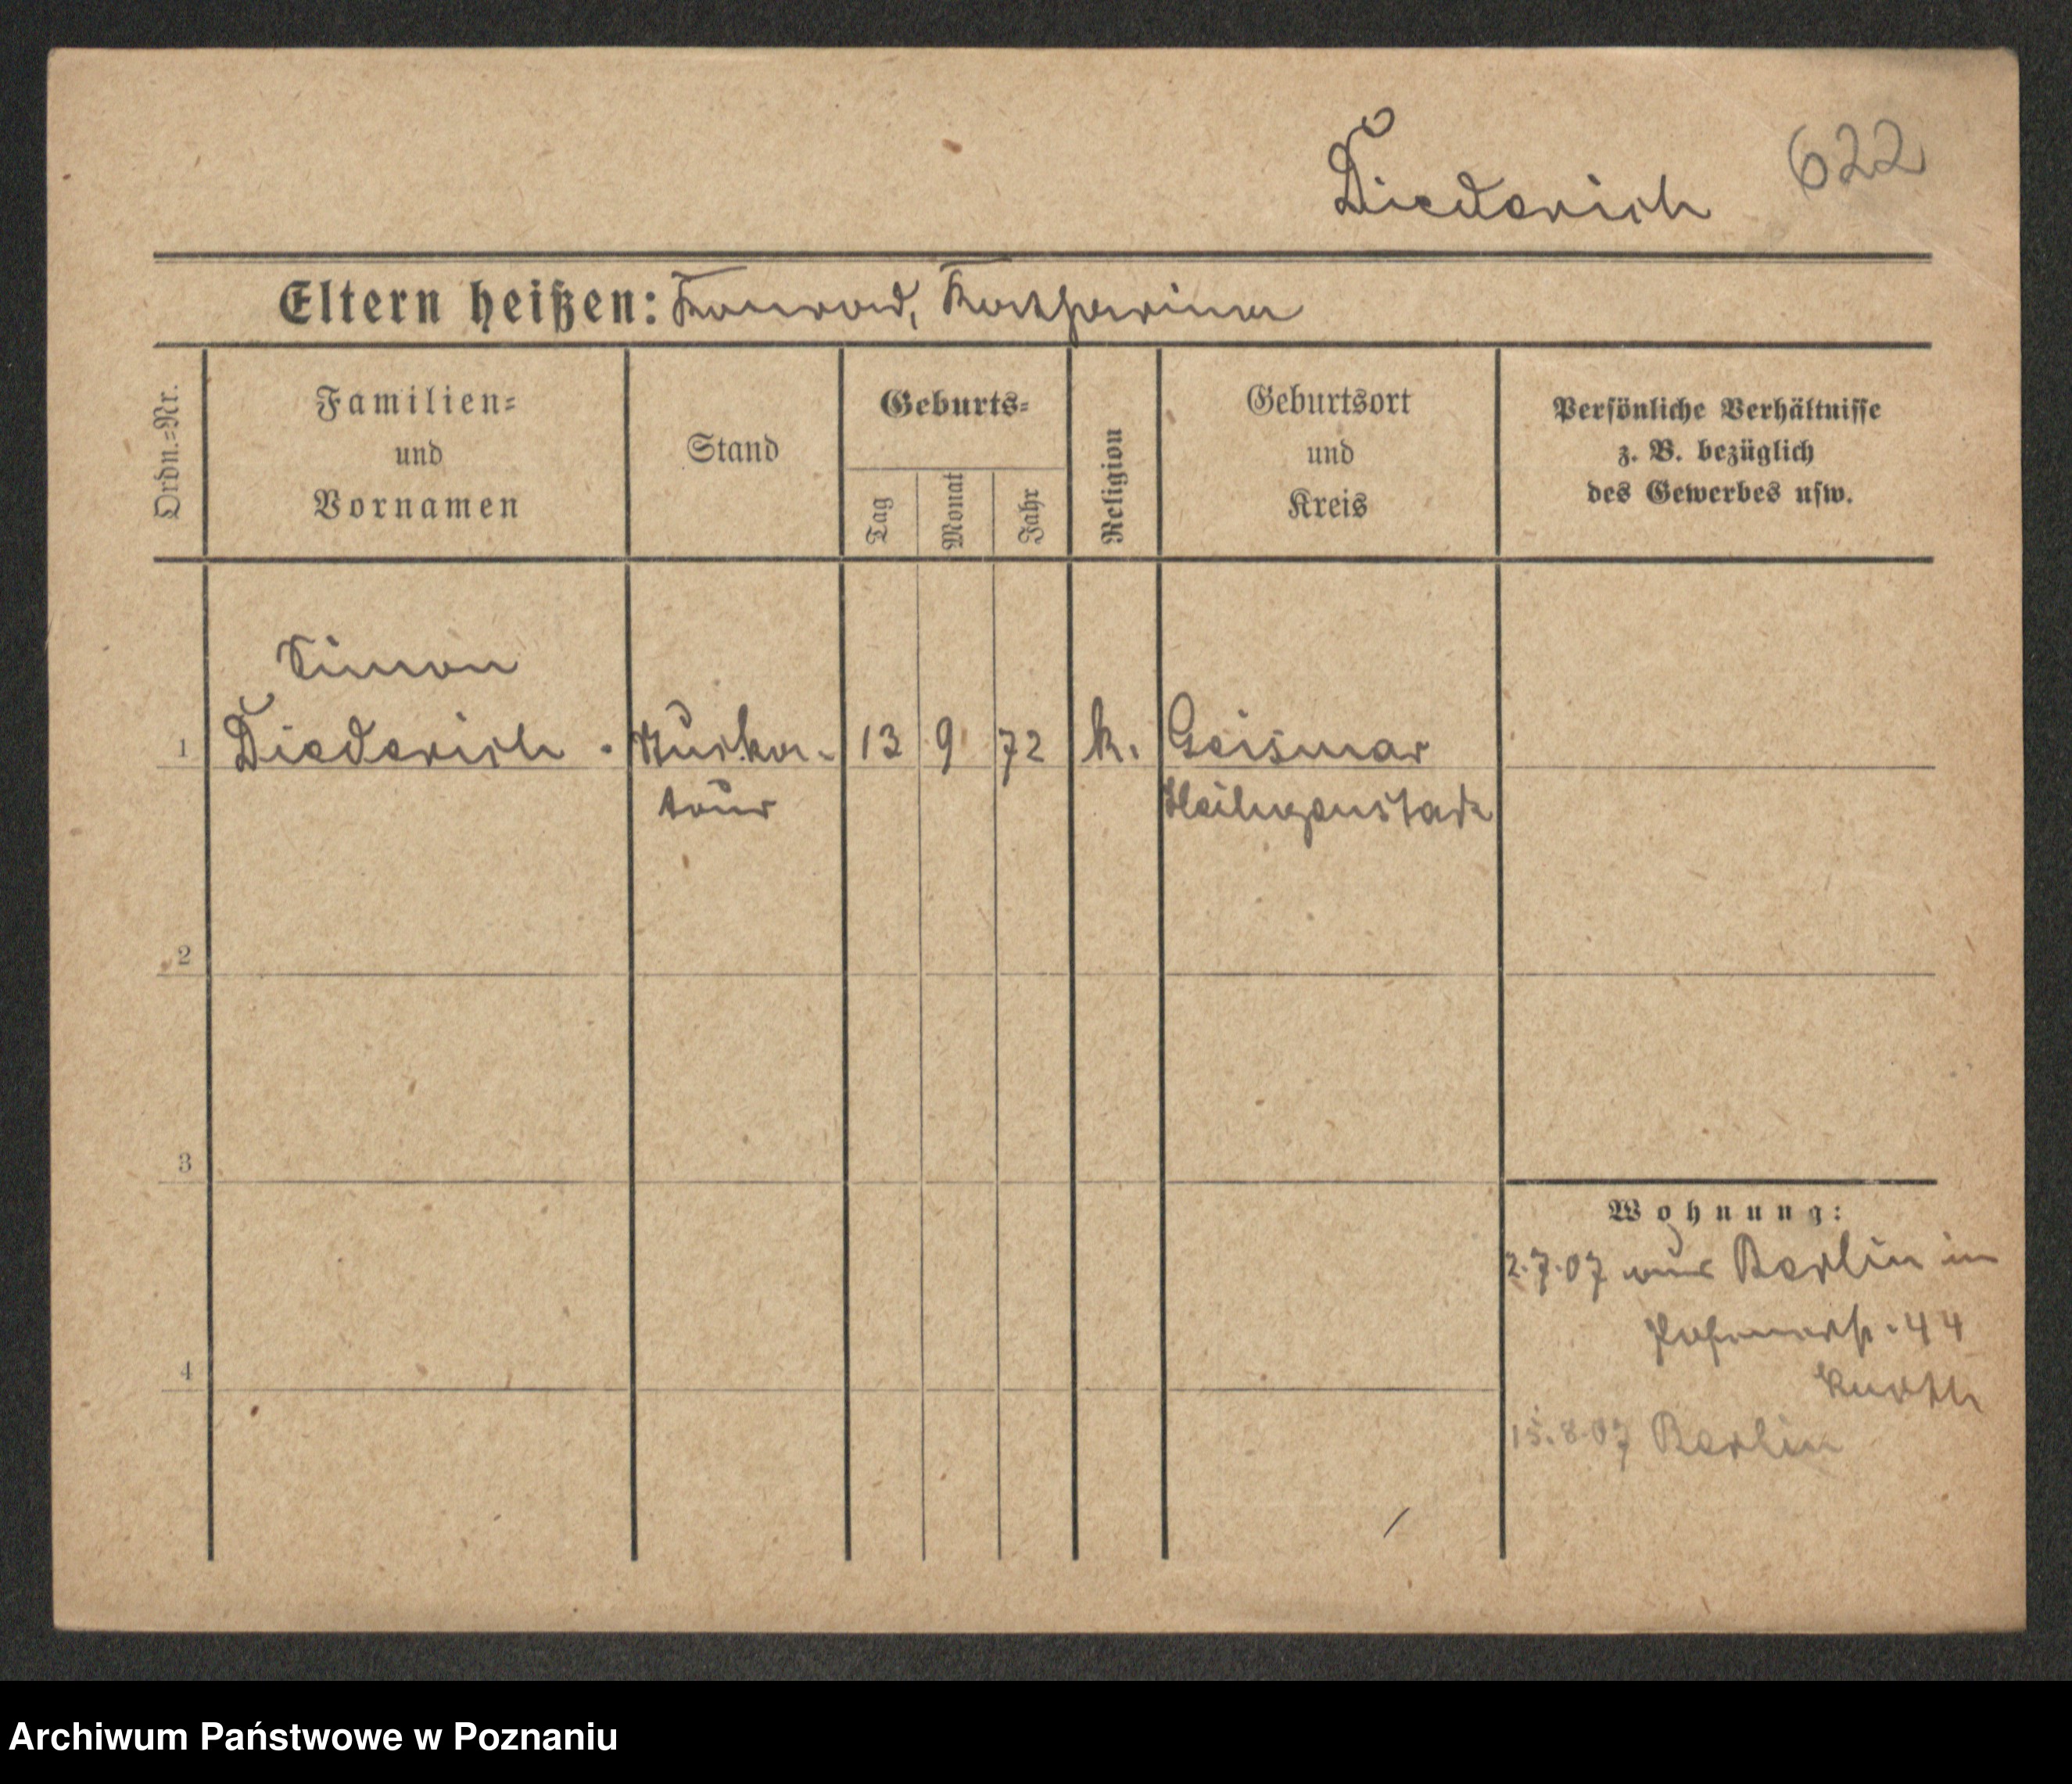 622
Diederich
Eltern heißen: Konrad, Katharina
Ordn.=Nr.
Familien=
und
Vornamen
Stand
Geburts=
Tag
Monat
Jahr
Religion
Geburtsort
und
Kreis
Persönliche Verhältnisse
z. B. bezüglich
des Gewerbes usw.
Simon
1 Diederich . Stucka- 13 9 72 k. Geismar
teur Heiligenstadt
2
3
Wohnung:
2.7.07 aus Berlin in
44
4
Kurth
15.8.07 Berlin
Archiwum Państwowe w Poznaniu